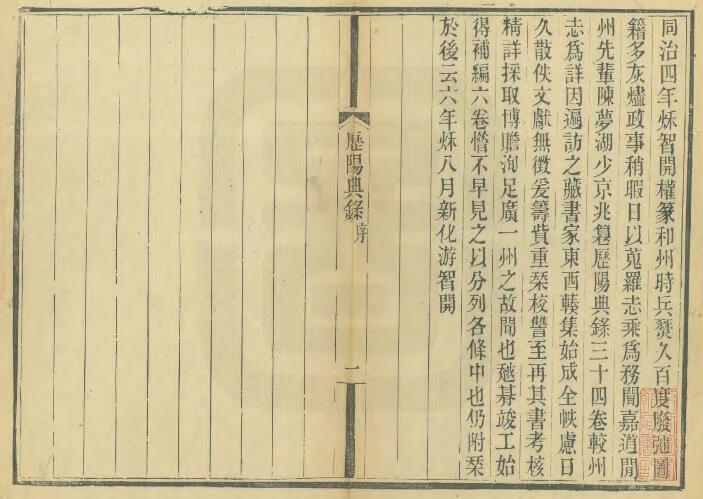 同治四年秌智開權篆和州時兵燹久百度廢弛圖
籍多灰燼政事稍暇日以蒐羅志乘爲務聞嘉道間
州先輩陳夢湖少京兆纂歷陽典錄三十四卷較州
志爲詳因遍訪之藏書家東西輳集始成全帙慮日
久散佚文獻無徵爰籌貲重棃校讐至再其書考核
精詳採取博贍洵足廣一州之故聞也越朞竣工始
得補編六卷惜不早見之以分列各條中也仍附棃
於後云六年秌八月新化游智開
歷陽典錄 序
一